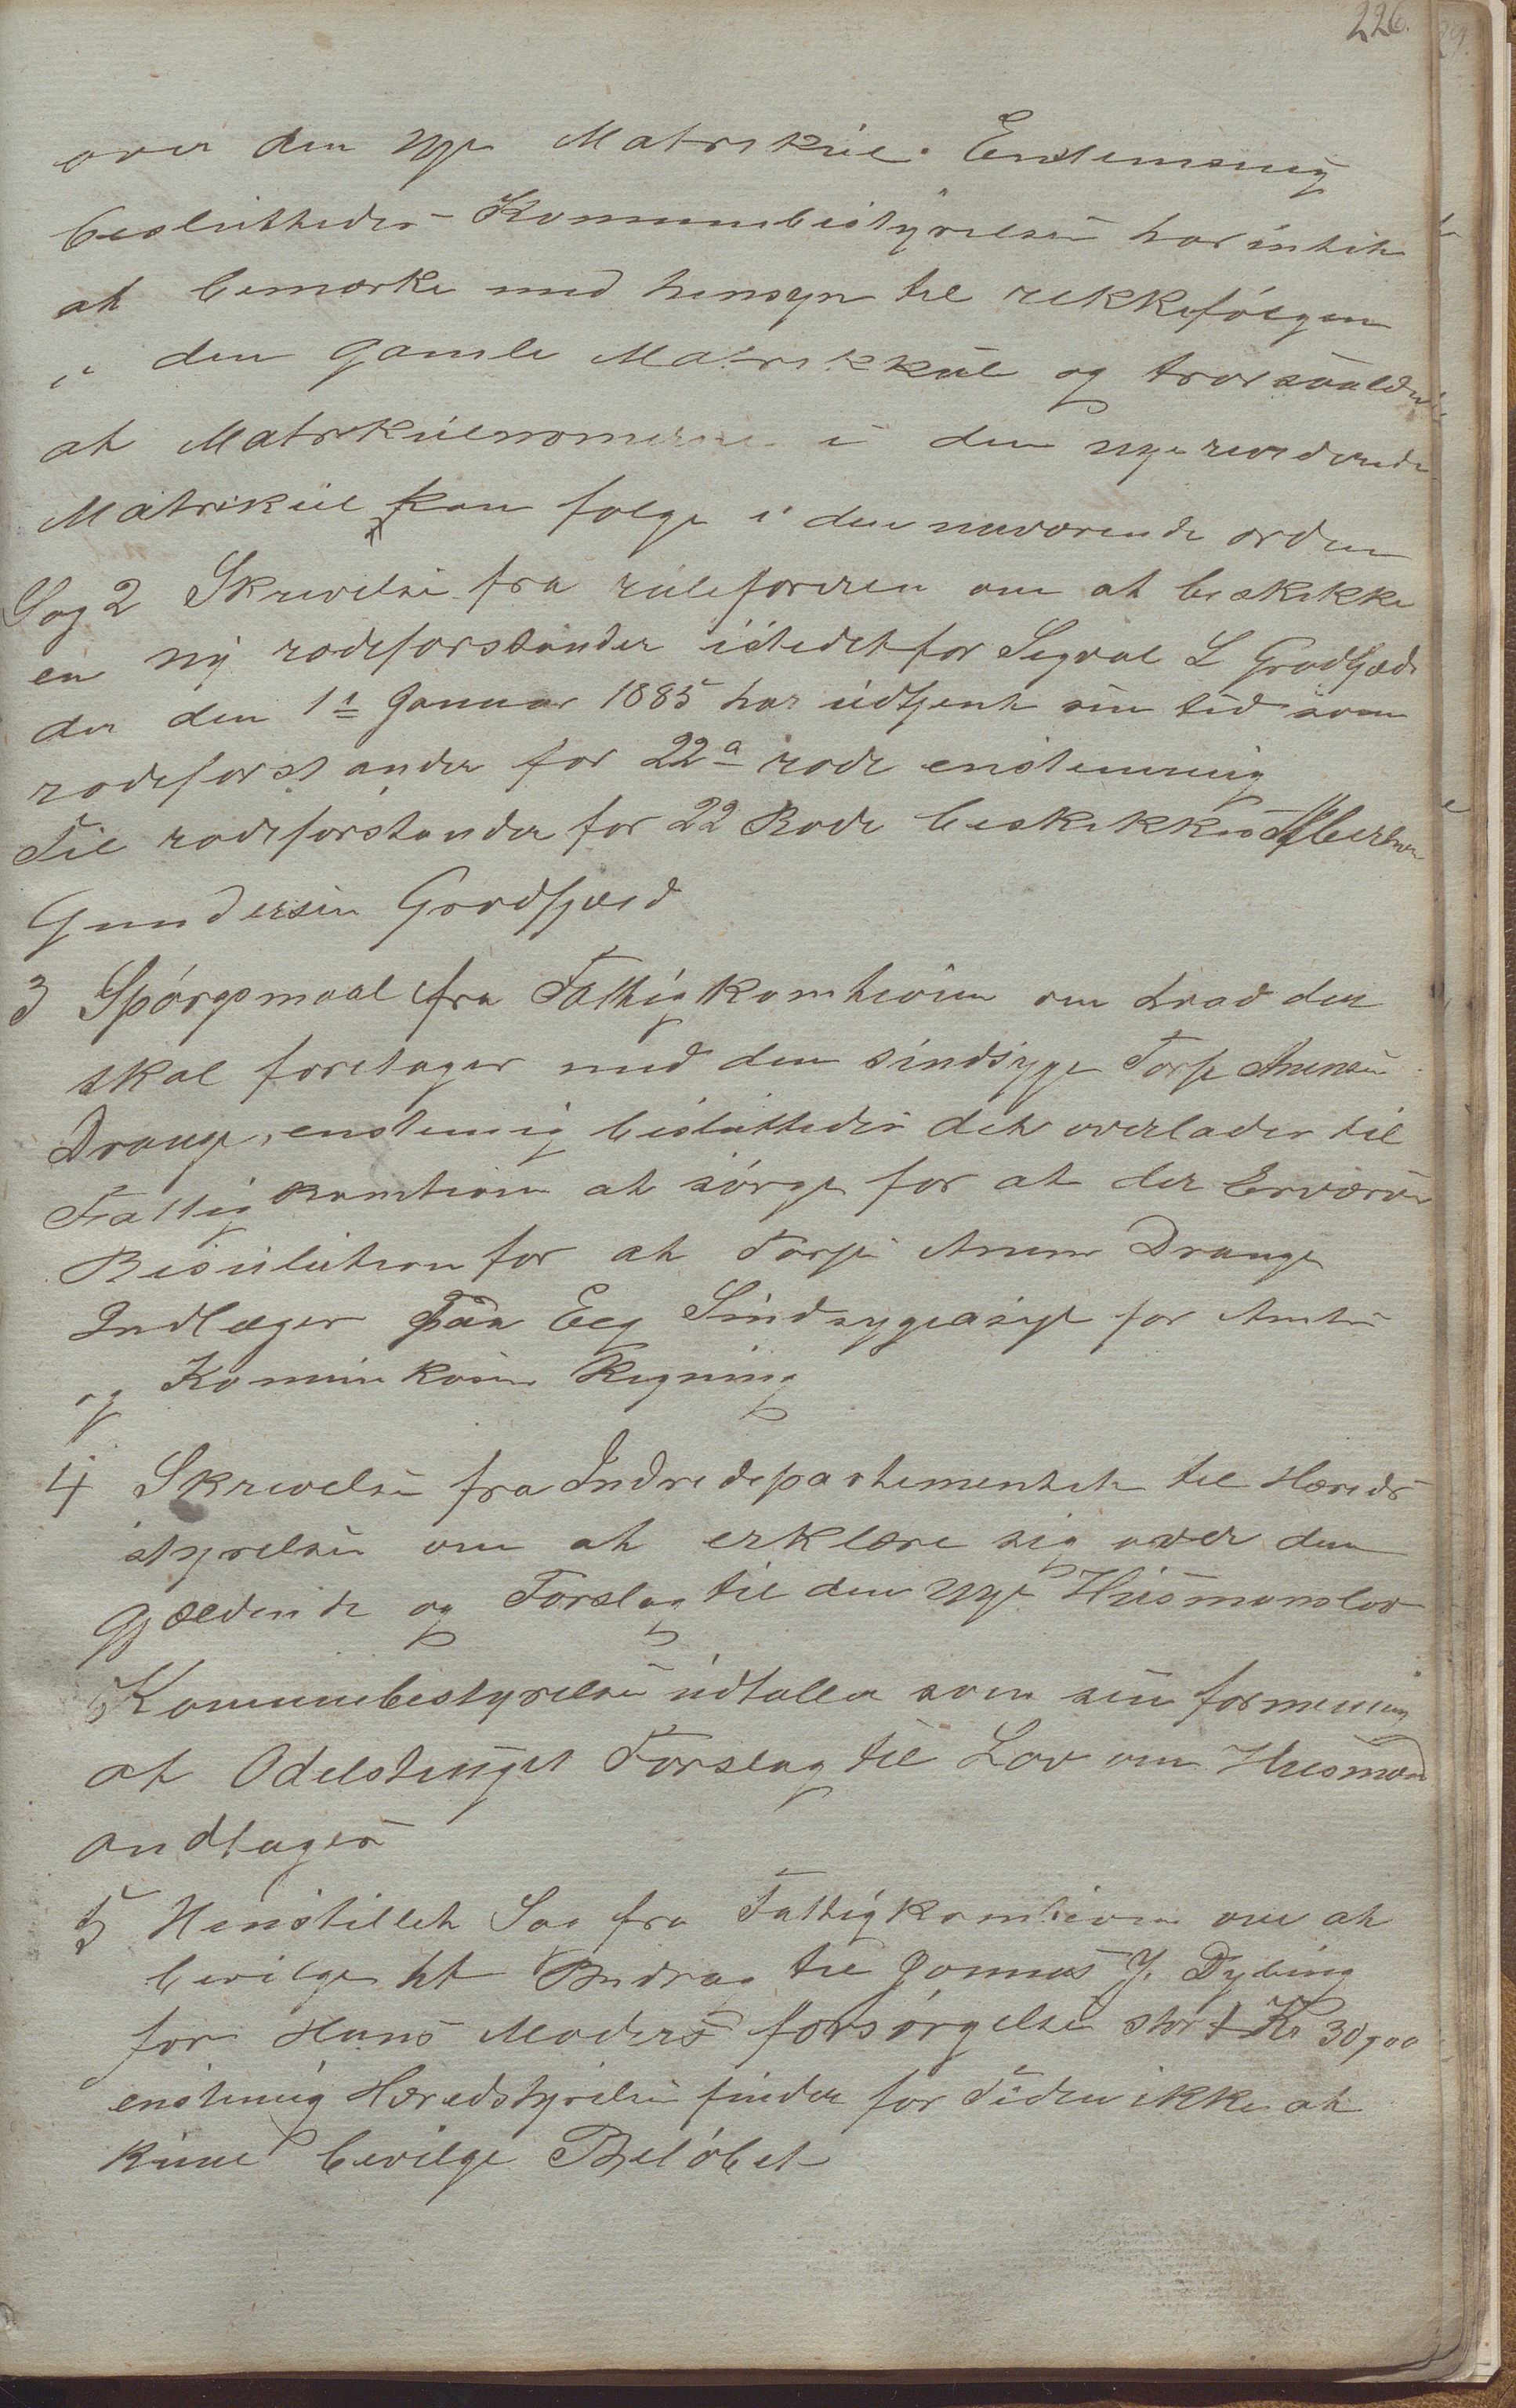 226.
over den nye Matrikul. Enstemmig
besluttedes Kommunebestyrelsen har intet
at bemærke med hensyn til rekkefølgen
i den gamle Matrikkul og tror saaledes
at Matrikulnomerne i den nye reviderede
Matrikul kan følge i den nuværende orden
Sag 2 Skrivelse fra ruleføreren om at beskikke
en ny rodeforstander istedetfor Sigval L Gravfjæd
der den 1ste Januar 1885 har udtjent sin tid som
rodeforstander for 22a rode enstemmig
Til rodeforstander for 22 Rode beskikkes
Gundersen
3 Spørgsmaal fra Fattigkomisionen om hvad der
skal foretages med den sindsyge Torje Anensen
Drange, enstemig besluttedes det overlades til
Fattigkomisionen at sørge for at der Erværves
Resulution for at Torje Anens Drange
Indlæges paa Eeg Sindsygeasyl for Amtes
og Komunkasens Regning
4 Skrivelse fra Indredepartementet til Hereds
styrelsen om at erklære sig over den
gjældende og Forslag til den nye Husmanslov
Kommunebestyrelsen udtaller som sin formening
at Odelstinget Forslag til Lov om Husmænd
andtages
5 Henstillet Sag fra Fattigkomisionen om at
bevilge et Bidrag til Jonnas J. Dybing
for Hans Moders forsørgelse stort Kr 30,00
enstemig Heredstyrelsen finder for Tiden ikke at
kune bevilge Beløbet